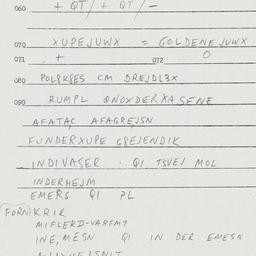 060 + QT/ + QT/-
070 XUPEJUWX = GOLDENE JUWX
071 + 072 O
080 POLPKPES CM DREJDL3X
090 RUMPL QNOXDERXASENE
AFATAC AFAGREJSN
FUNDERXUPE GREJENDIK
INDIVASER . QI TSVEJ MOL
INDERHEJM
EMERS QI PL
FORN KRIK
MIFLERD-VARFMT
INE, MESN QI IN DER EMESN